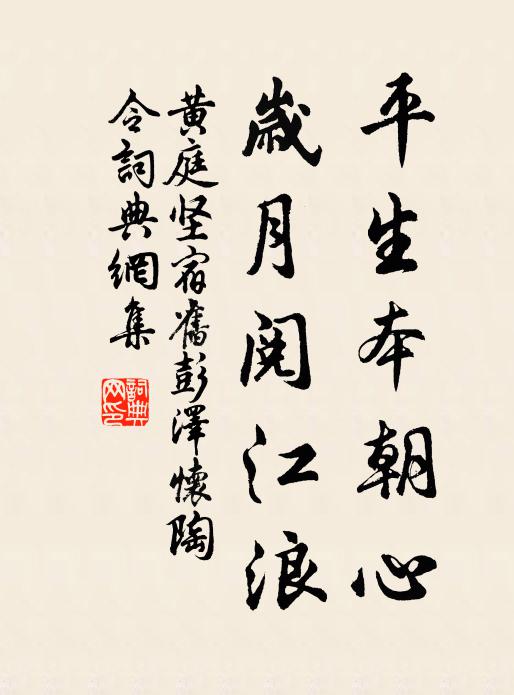 平生本朝心
歳月閱江浪
黃庭坚宿舊彭澤懷陶
令詞典網集
詞典網印